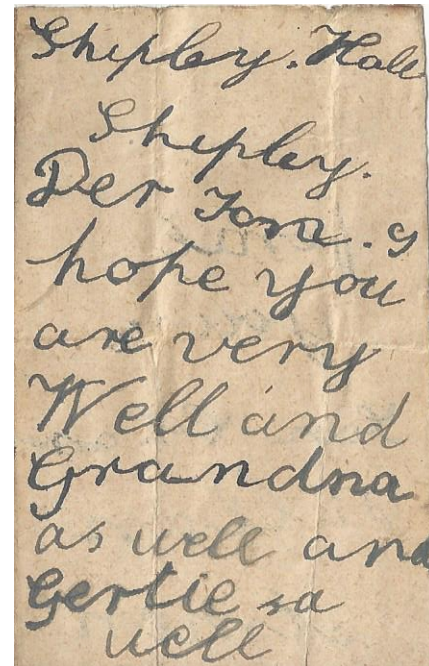 Shipley. Hall
Shipley.
Der Tom. I
hope you
are very
Well and
Grandna
as well and
Gertie sa
well